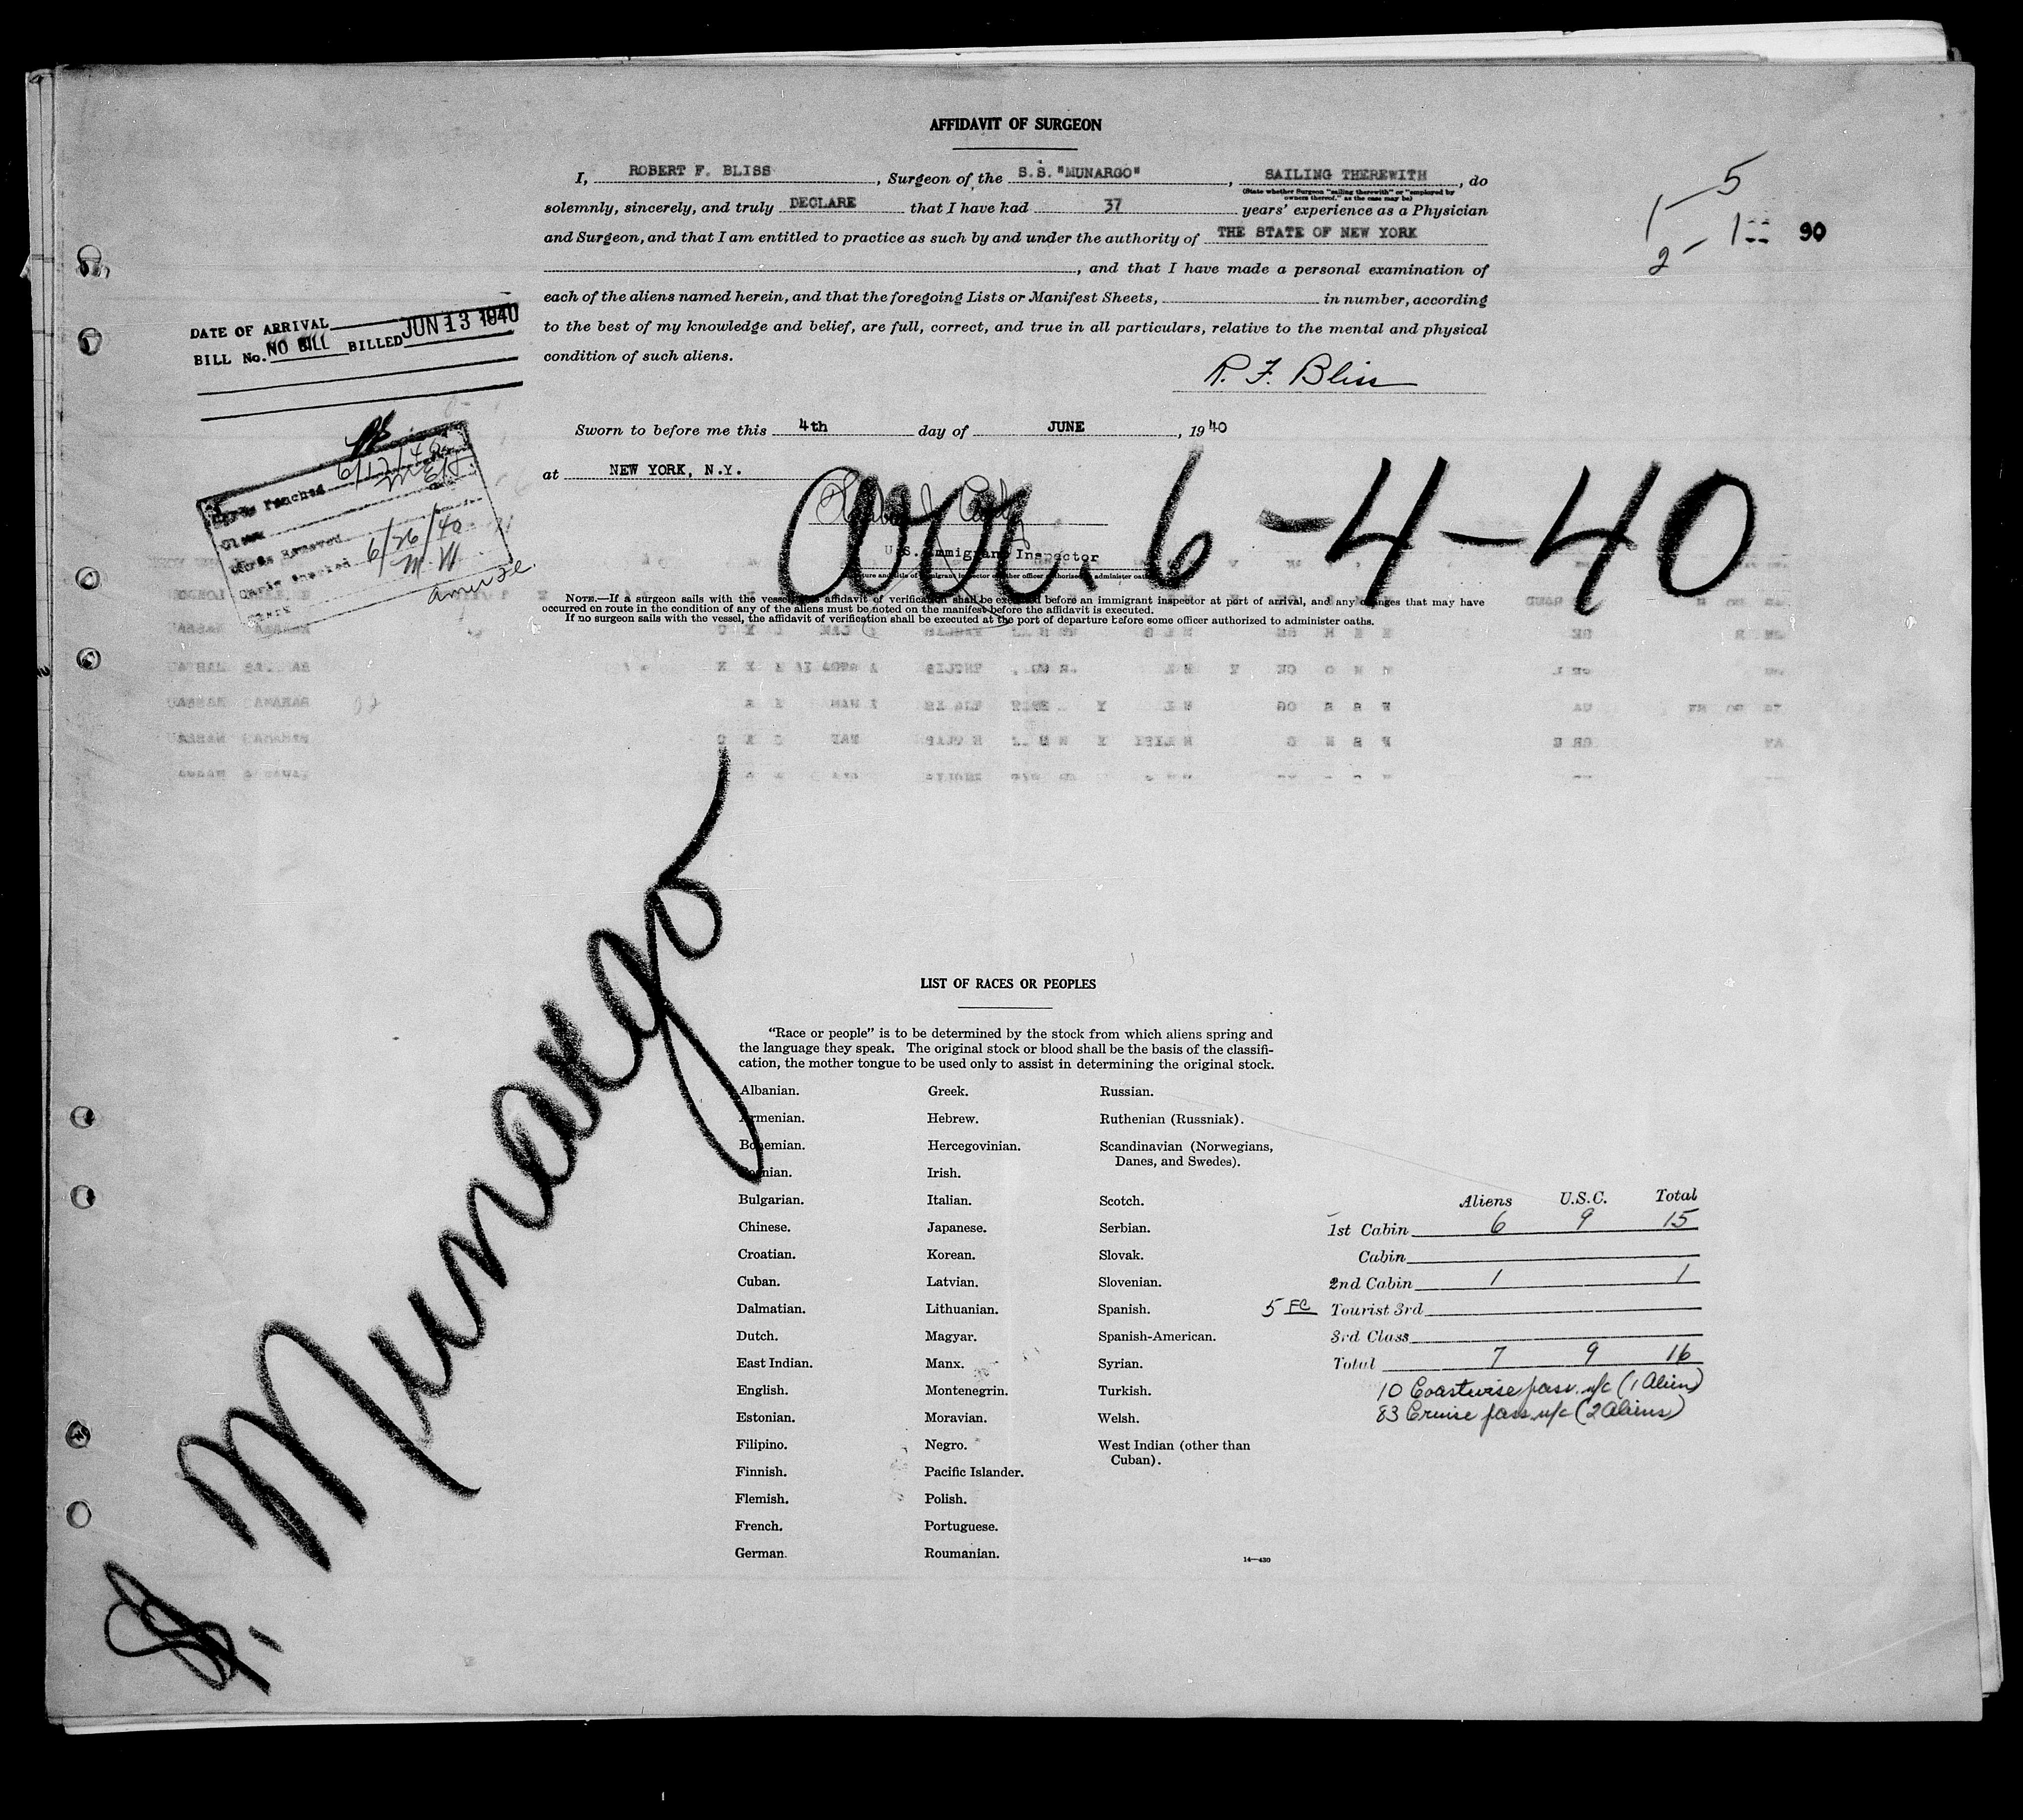 AFFIDAVIT OF SURGEON
I, ROBERT F. BLISS, Surgeon of the S.S. "MUNARGO", SAILING THEREWITH, do
(State whether Surgeon "sailing therewith" or "employed by owners thereof," as the case may be)
solemnly, sincerely, and truly DECLARE that I have had 37 years' experience as a Physician
and Surgeon, and that I am entitled to practice as such by and under the authority of THE STATE OF NEW YORK
, and that I have made a personal examination of
each of the aliens named herein, and that the foregoing Lists or Manifest Sheets, in number, according
to the best of my knowledge and belief, are full, correct, and true in all particulars, relative to the mental and physical
condition of such aliens.
R. F. Bliss
1 - 5
2 - 1 90
DATE OF ARRIVAL
BILL No. NO BILL BILLED JUN 13 1940
Sworn to before me this 4th day of JUNE, 1940
at NEW YORK, N.Y.
Arr. 6-4-40
U.S. Immigrant Inspector
Cards Punched 6/12/40
6/26/40
M.W.
NOTE.—If a surgeon sails with the vessel, this affidavit of verification shall be executed before an immigrant inspector at port of arrival, and any changes that may have
occurred en route in the condition of any of the aliens must be noted on the manifest before the affidavit is executed.
If no surgeon sails with the vessel, the affidavit of verification shall be executed at the port of departure before some officer authorized to administer oaths.
S. Munargo
LIST OF RACES OR PEOPLES
"Race or people" is to be determined by the stock from which aliens spring and
the language they speak. The original stock or blood shall be the basis of the classifi-
cation, the mother tongue to be used only to assist in determining the original stock.
Albanian.
Armenian.
Bohemian.
Bosnian.
Bulgarian.
Chinese.
Croatian.
Cuban.
Dalmatian.
Dutch.
East Indian.
English.
Estonian.
Filipino.
Finnish.
Flemish.
French.
German.
Greek.
Hebrew.
Hercegovinian.
Irish.
Italian.
Japanese.
Korean.
Latvian.
Lithuanian.
Magyar.
Manx.
Montenegrin.
Moravian.
Negro.
Pacific Islander.
Polish.
Portuguese.
Roumanian.
Russian.
Ruthenian (Russniak).
Scandinavian (Norwegians,
Danes, and Swedes).
Scotch.
Serbian.
Slovak.
Slovenian.
Spanish.
Spanish-American.
Syrian.
Turkish.
Welsh.
West Indian (other than
Cuban).
14—430
Aliens U.S.C. Total
1st Cabin 6 9 15
Cabin
2nd Cabin 1 1
5 FC Tourist 3rd
3rd Class
Total 7 9 16
10 Coastwise pass. n/c (1 Alien)
83 Cruise pass n/c (2 Aliens)